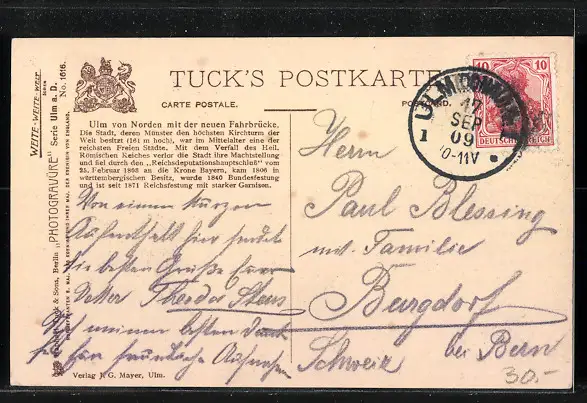 TUCK'S POSTKARTE
CARTE POSTALE. POSTCARD.
Ulm von Norden mit der neuen Fahrbrücke.
Die Stadt, deren Münster den höchsten Kirchturm der
Welt besitzt (161 m hoch), war im Mittelalter eine der
reichsten Freien Städte. Mit dem Verfall des Heil.
Römischen Reiches verlor die Stadt ihre Machtstellung
und fiel durch den „Reichsdeputationshauptschluß" vom
25. Februar 1803 an die Krone Bayern, kam 1806 in
württembergischen Besitz, wurde 1840 Bundesfestung
und ist seit 1871 Reichsfestung mit starker Garnison.
Von einem kurzen
Aufenthalt hier sendet
die besten Grüße Euer
Vetter Theodor
Auch meinen besten Dank
für freundliche Aufnahme
Verlag J. G. Mayer, Ulm.
WEITE-WEITE-WELT
"PHOTOGRAVÜRE" Serie Ulm a. D. No. 1616.
& Sons, Berlin
ULM
17
SEP
09
10-11V
1
10 10
DEUTSCHES REICH
Herrn
Paul Blessing
mit Familie
Burgdorf
bei Bern
Schweiz
30.-